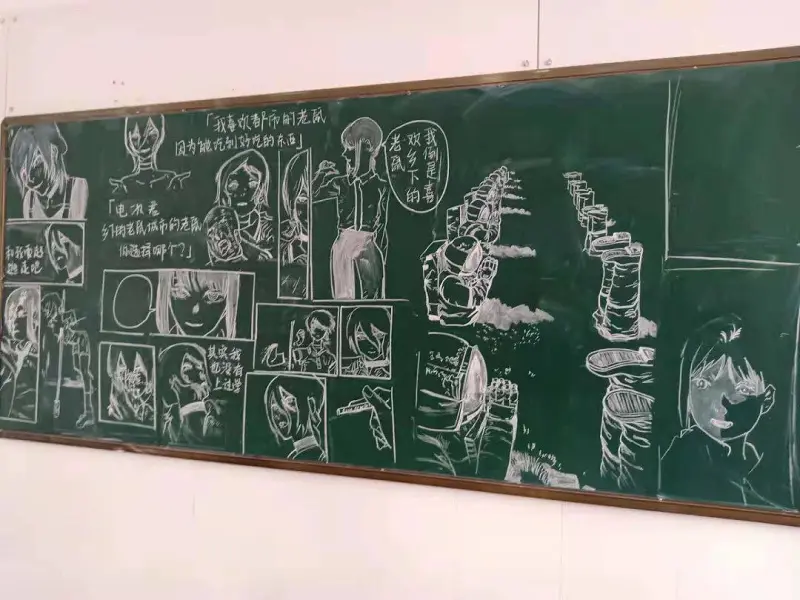 「我喜欢都市的老鼠
因为能吃到好吃的东西」
我倒是喜
欢乡下的
老鼠
「电次君
乡村老鼠城市的老鼠
你选择哪个？」
和我一起
逃走吧
其实我
也没有
上过学